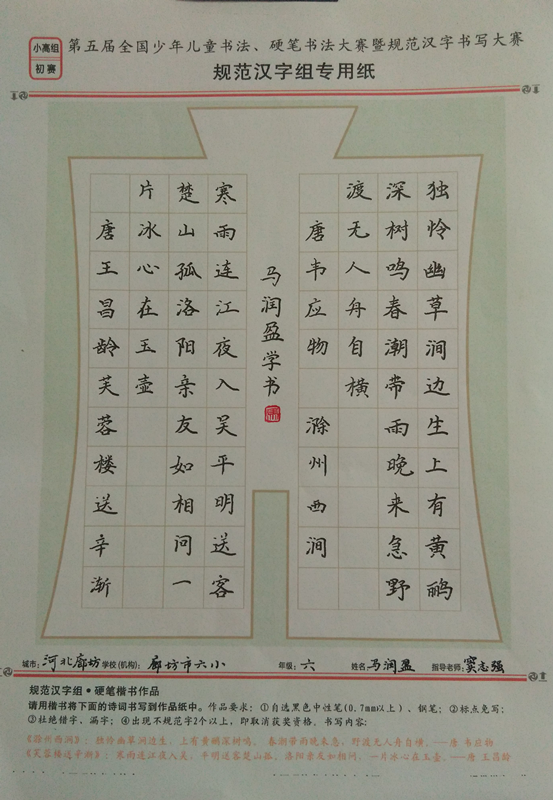 小高组
初赛
第五届全国少年儿童书法、硬笔书法大赛暨规范汉字书写大赛
规范汉字组专用纸
独怜幽草涧边生上有黄鹂
深树鸣春潮带雨晚来急野
渡无人舟自横
唐韦应物 滁州西涧
马润盈学书
寒雨连江夜入吴平明送客
楚山孤洛阳亲友如相问一
片冰心在玉壶
唐王昌龄芙蓉楼送辛渐
城市：河北廊坊 学校(机构)：廊坊市六小 年级：六 姓名：马润盈 指导老师：窦志强
规范汉字组·硬笔楷书作品
请用楷书将下面的诗词书写到作品纸中。作品要求：①自选黑色中性笔(0.7mm以上)、钢笔；②标点免写；
③杜绝错字、漏字；④出现不规范字2个以上，即取消获奖资格。书写内容：
《滁州西涧》：独怜幽草涧边生，上有黄鹂深树鸣。春潮带雨晚来急，野渡无人舟自横。——唐 韦应物
《芙蓉楼送辛渐》：寒雨连江夜入吴，平明送客楚山孤。洛阳亲友如相问，一片冰心在玉壶。——唐 王昌龄